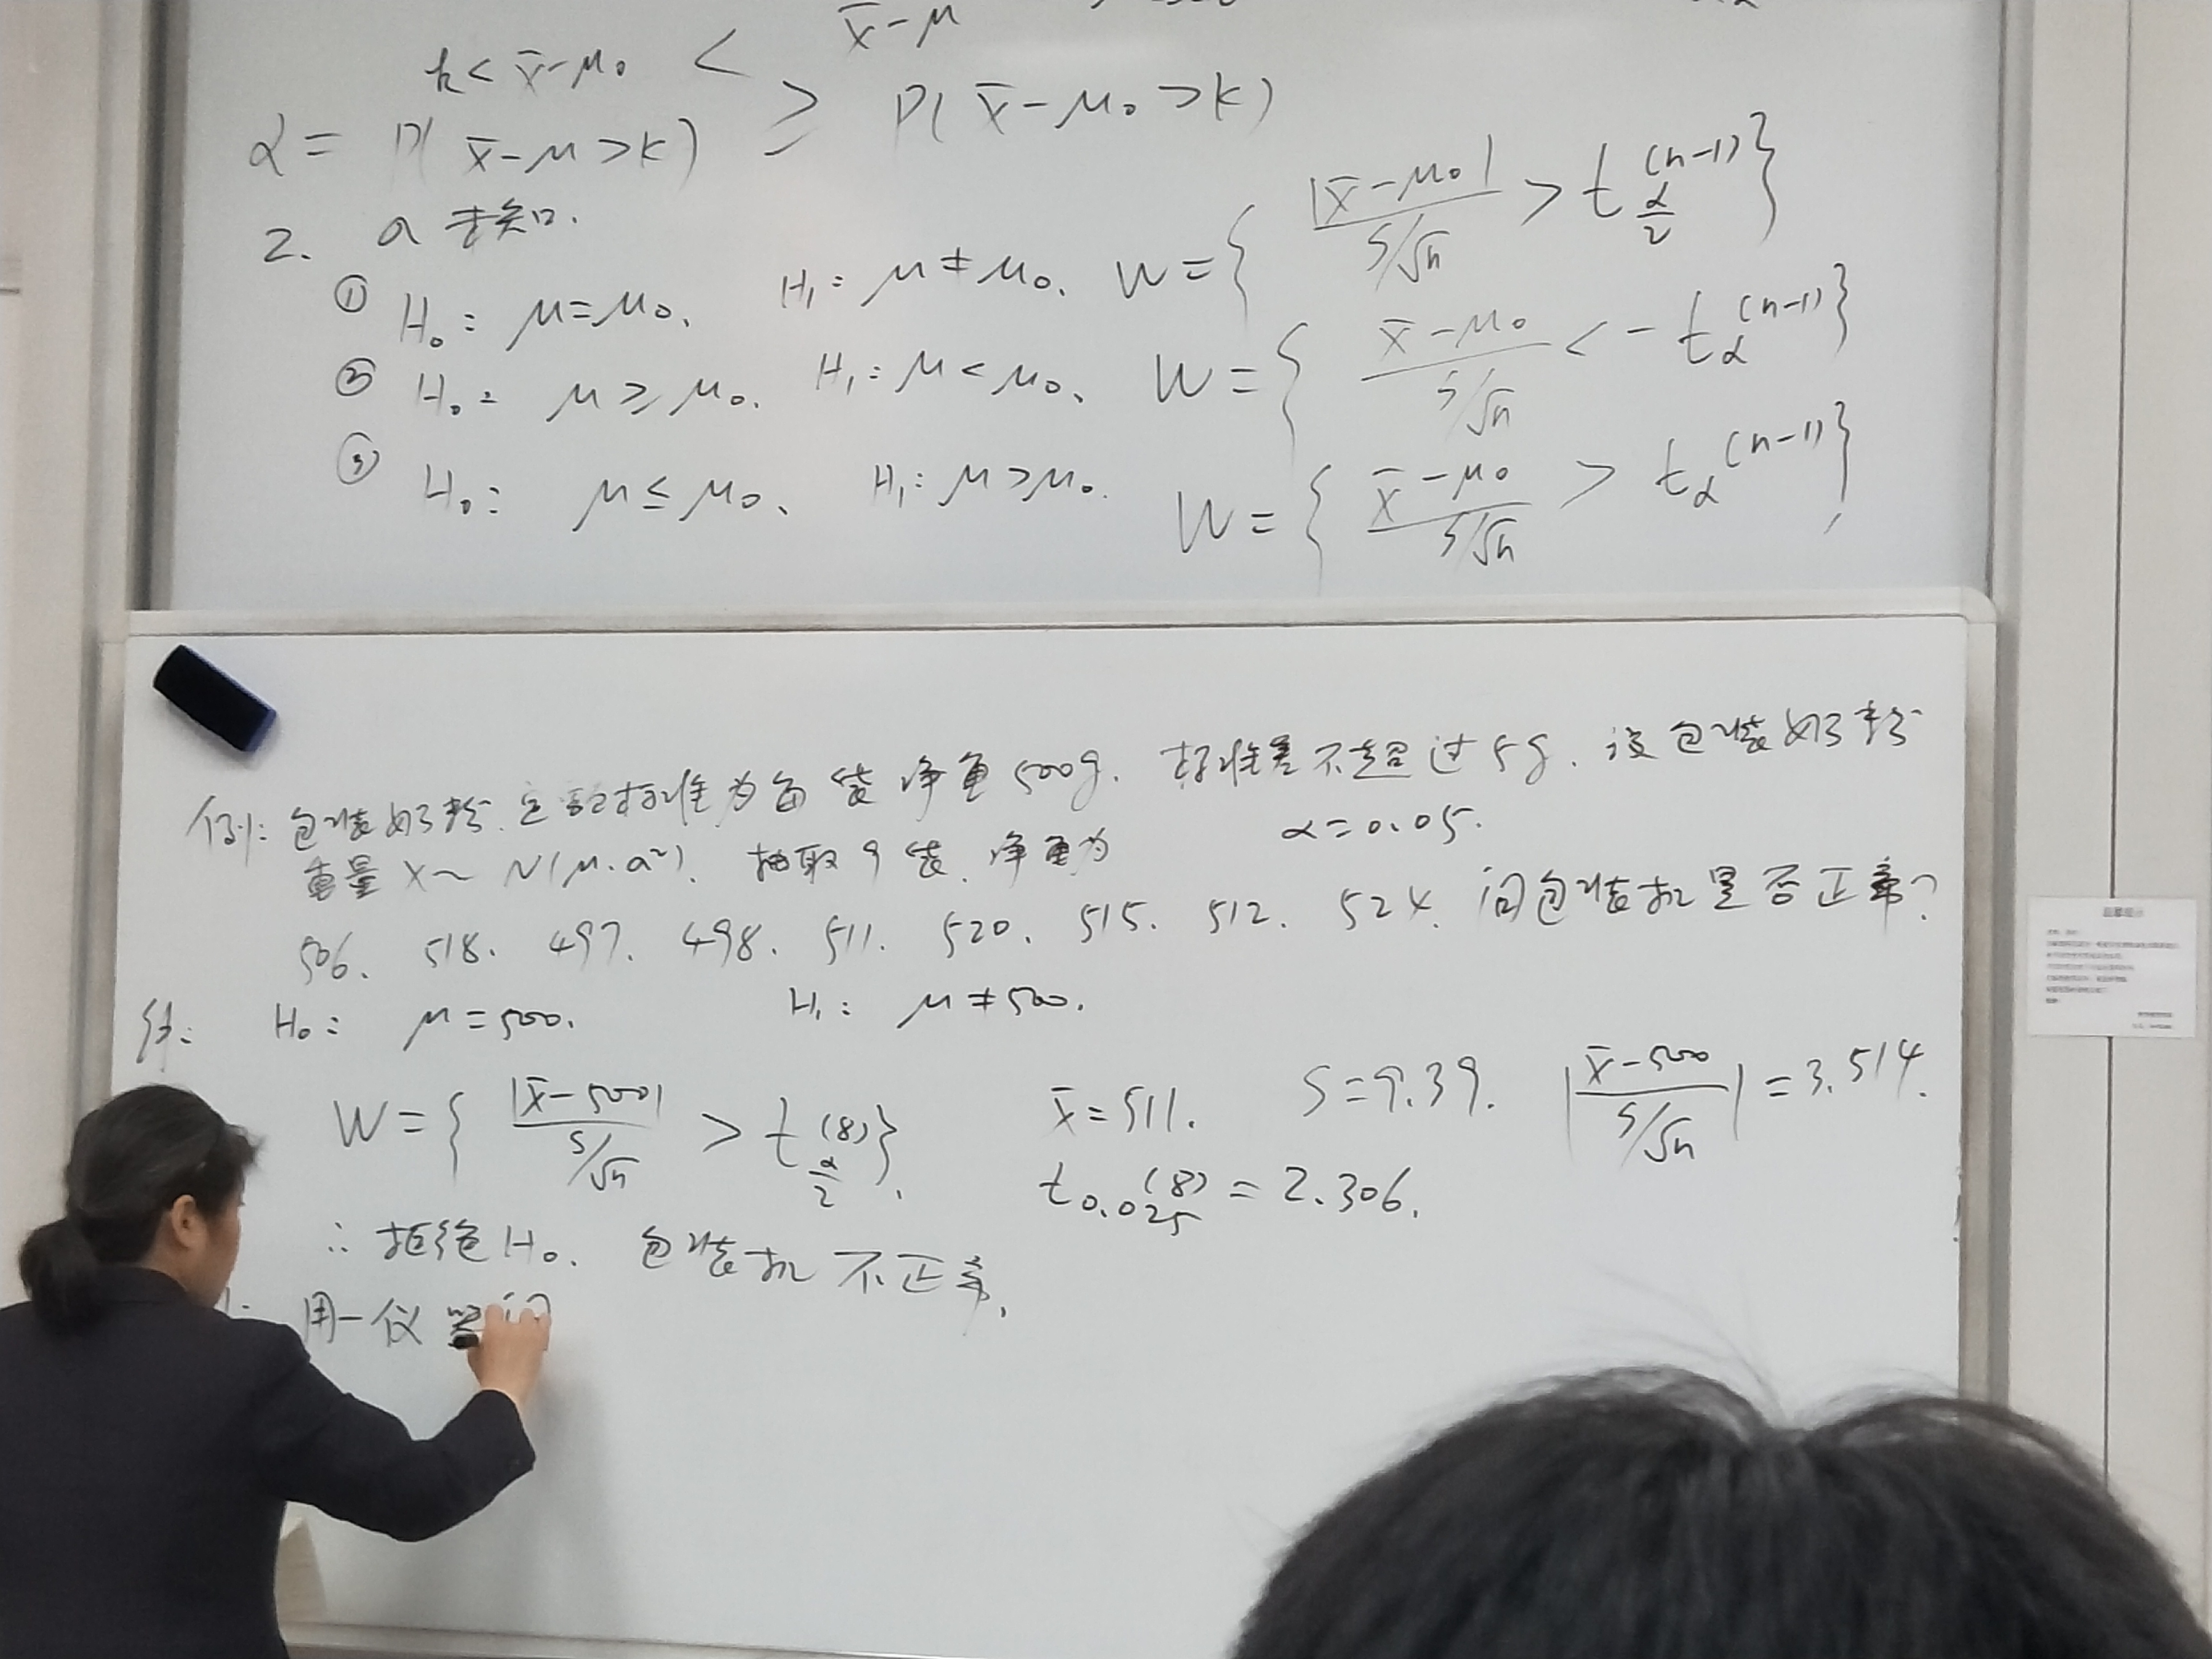 x̄-μ
k< x̄-μ₀ <
α = P( x̄-μ >k) ≥ P( x̄-μ₀ >k)
2. σ 未知.
① H₀: μ=μ₀、 H₁: μ≠μ₀、 W={ |x̄-μ₀| / S/√n > t_{α/2}(n-1)}
② H₀: μ≥μ₀. H₁: μ<μ₀、 W={ x̄-μ₀ / S/√n < -t_α(n-1)}
③ H₀: μ≤μ₀、 H₁: μ>μ₀. W={ x̄-μ₀ / S/√n > t_α(n-1)}
例: 包装奶粉、包装标准为每袋净重500g. 标准差不超过5g. 设包装奶粉
重量 X~N(μ.σ²). 抽取9袋. 净重为 α=0.05.
506. 518. 497. 498. 511. 520. 515. 512. 524. 问包装机是否正常?
解: H₀: μ=500. H₁: μ≠500.
W={ |x̄-500| / S/√n > t_{α/2}(8)}. x̄=511. S=9.39. |x̄-500 / S/√n| =3.514.
t_{0.025}(8) = 2.306.
∴ 拒绝H₀. 包装机不正常.
用一仪器